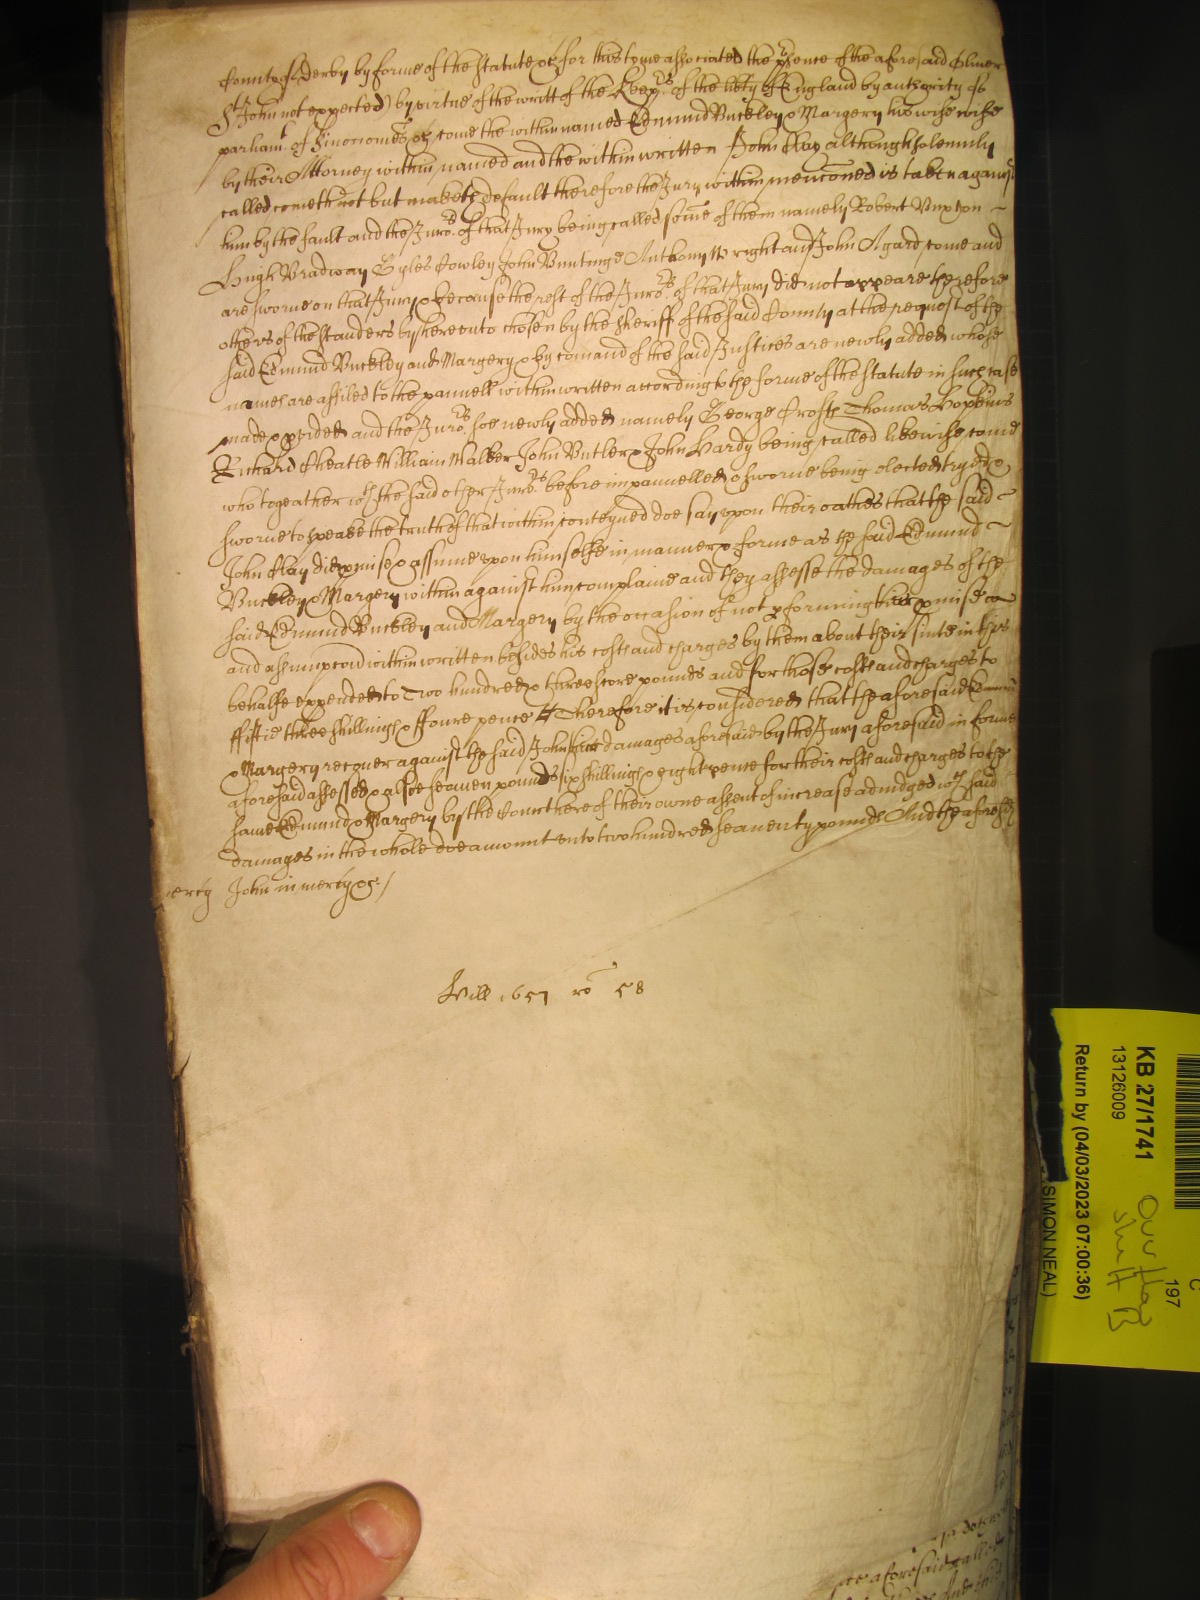 County of Derby by forme of the statute &c for this tyme associated the p'sence of the aforesaid Oliver
St John not expected) by virtue of the writt of the Keeprs of the libty of England by authority of
parliamt of Si non omnes &c come the within named Edmund Buckley & Margery his wife
by their Attorney within named and the within written John Clay although solemnly
called cometh not but maketh default therefore the Jury within menconed is taken against
him by the fault and the Jurors of that Jury being called some of them namely Robert Buxton
Hugh Bradway Gyles Cowley John Buntinge Anthony Wright and John Agard come and
are sworne on that Jury & because the rest of the Jurors of that Jury did not appeare therefore
others of the standers by hereunto chosen by the sheriff of the said County at the request of the
said Edmund Buckley and Margery & by comand of the said Justices are newly added whose
names are affiled to the pannell within written according to the forme of the statute in such case
made & pvided and the Jurors soe newly added namely George Crofts Thomas Hopkins
Richard Cheatle William Walker John Butler & John Hardy being called likewise come
who togeather wth the said other Jurors before impannelled & sworne being elected tryed &
sworne to speake the truth of that within conteyned doe say upon their oathes that the said
John Clay did pmise & assume upon himselfe in manner & forme as the said Edmund
Buckley & Margery within against him complaine and they assesse the damages of the
said Edmund Buckley and Margery by the occasion of not pforming the pmise &
and assumpcon within written besides his costs and charges by them about their suite in this
behalfe expended to Two hundred & threescore pounds and for those costs and charges to
fiftie three shillings & foure pence Therefore it is considered that the aforesaid Edmund
& Margery recover against the said John damages aforesaid by the Jury aforesaid in forme
aforesaid assessed & alsoe seaven pounds six shillings & eight pence for their costs and charges to the
same Edmund & Margery by the Court here of their owne assent of increase adiudged wch said
damages in the whole doe amount unto two hundred seaventy pounds And the aforesd
ercy John in mercy &c /
Hill 1651 ro 58
KB 27/1741
13126009
Return by (04/03/2023 07:00:36)
SIMON NEAL)
C
197
aforesaid called